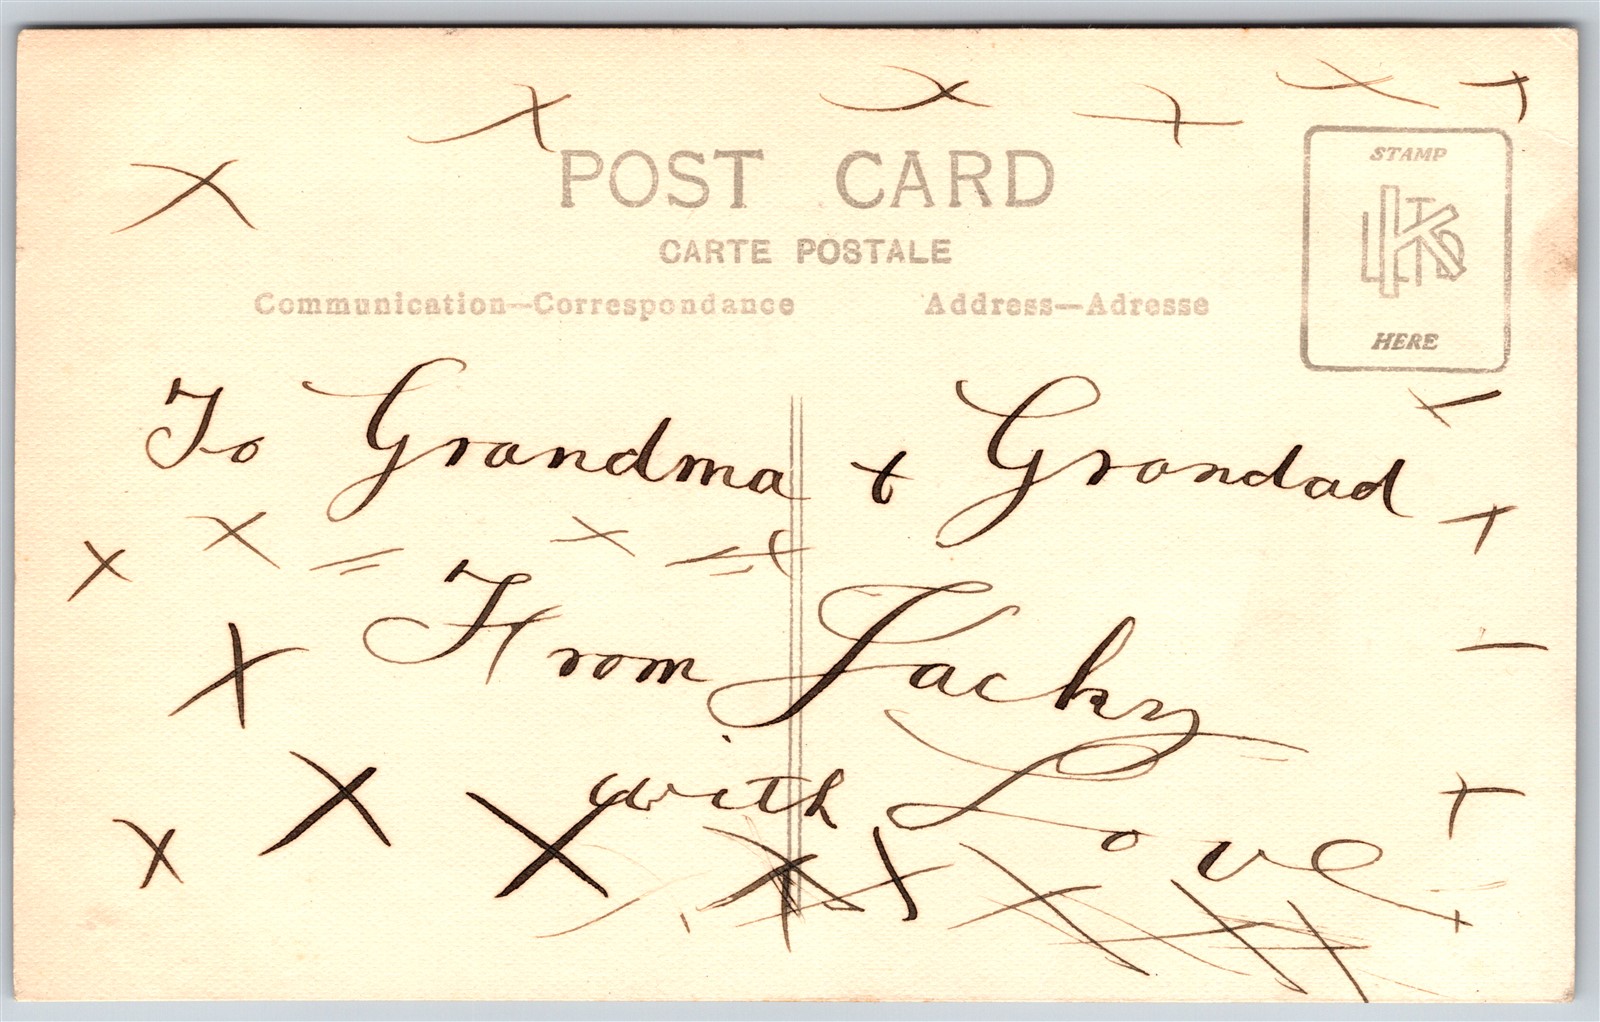 POST CARD
CARTE POSTALE
Communication—Correspondance
Address—Adresse
STAMP
HERE
To Grandma + Grandad
From Jacky
with Love